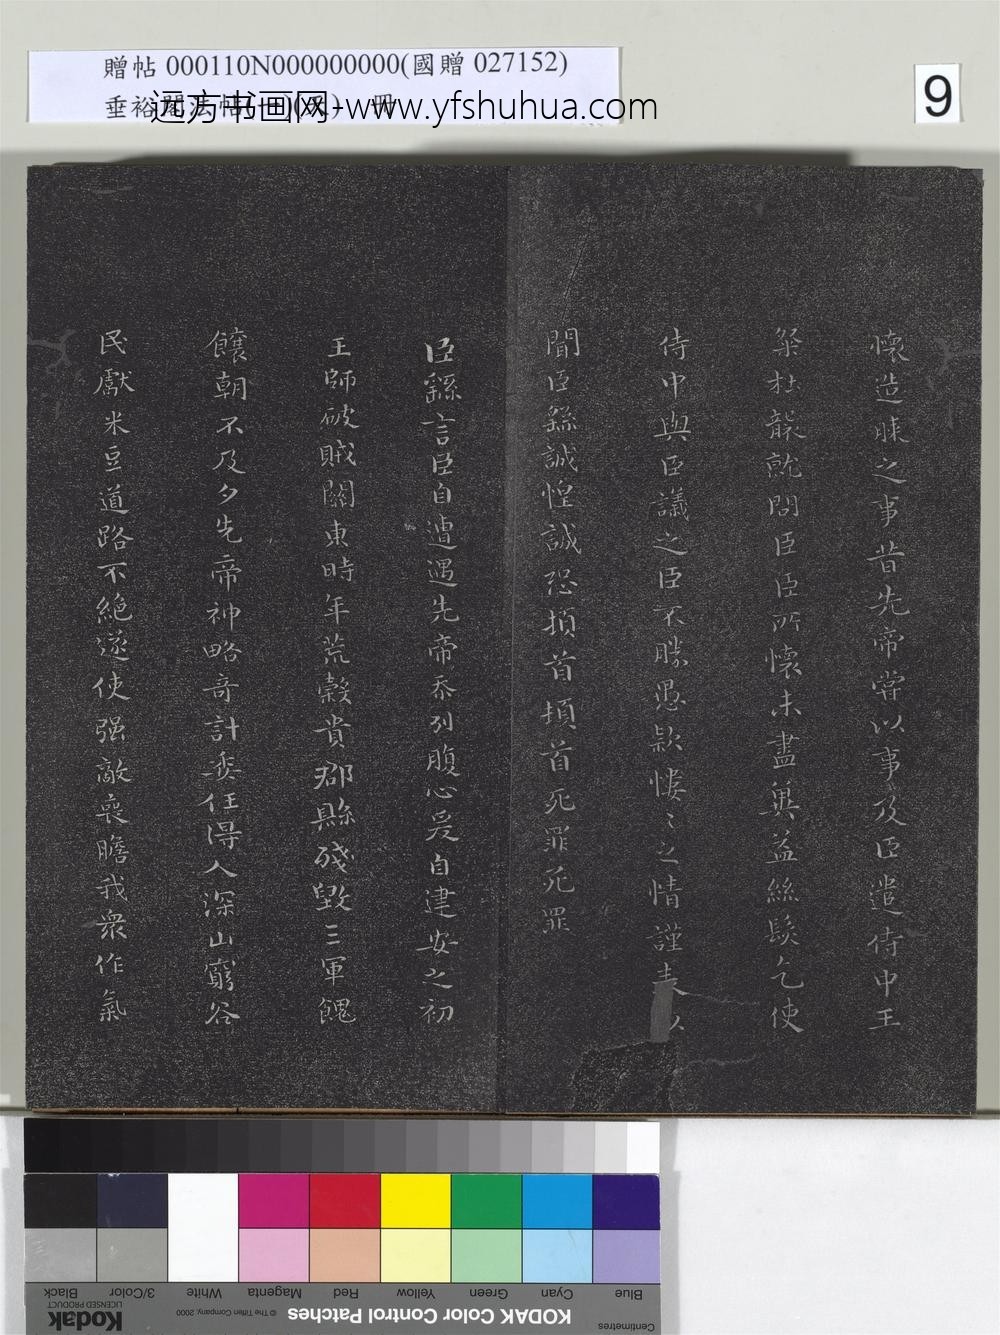 贈帖 000110N000000000(國贈 027152)
垂裕閣法帖 冊
远方书画网-www.yfshuhua.com
9
懷造膝之事昔先帝嘗以事及臣遣侍中王
粲杜襲就問臣臣所懷未盡奥益絲髮乞使
侍中與臣議之臣不勝愚款慺〻之情謹表以
聞臣繇誠惶誠恐頓首頓首死罪死罪
臣繇言臣自遭遇先帝忝列腹心爰自建安之初
王師破賊關東時年荒穀貴郡縣殘毀三軍餽
饟朝不及夕先帝神略奇計委任得人深山窮谷
民獻米豆道路不絶遂使强敵喪膽我衆作氣
Black
3/Color
White
Magenta
Red
Yellow
Green
Cyan
Blue
Kodak
LICENSED PRODUCT
© The Tiffen Company, 2000
KODAK Color Control Patches
Centimetres